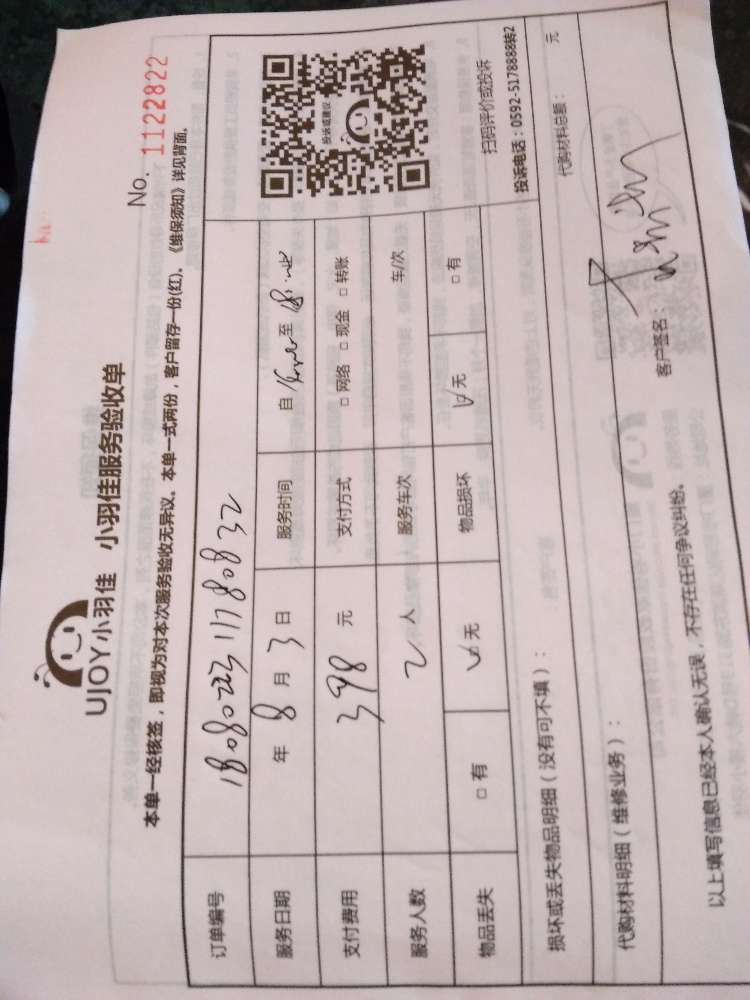 No. 1122822
UJOY小羽佳 小羽佳服务验收单
本单一经核签，即视为对本次服务验收无异议。本单一式两份，客户留存一份(红)。《维保须知》详见背面。
订单编号 18080223111780832
服务日期 年 8 月 3 日 服务时间 自 至
支付费用 398 元 支付方式 □ 网络 □ 现金 □ 转账
服务人数 2 人 服务车次 车/次
物品丢失 □ 有 ☑ 无 物品损坏 ☑ 无 □ 有
投诉或建议
扫码评价或投诉
投诉电话：0592-5178888转2
损坏或丢失物品明细（没有可不填）：
代购材料明细（维修业务）： 代购材料总额： 元
以上填写信息已经本人确认无误，不存在任何争议纠纷。 客户签名：